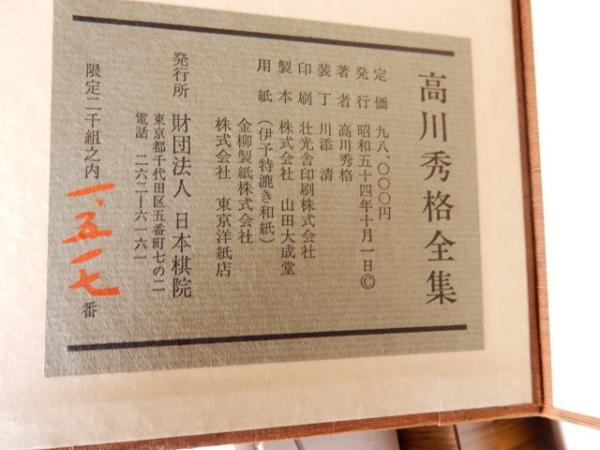 高川秀格全集
定価 九八、〇〇〇円
発行 昭和五十四年十月一日©
著者 高川秀格
装丁 川添 清
印刷 壮光舎印刷株式会社
製本 株式会社 山田大成堂
用紙 (伊予特漉き和紙)
金柳製紙株式会社
株式会社 東京洋紙店
発行所 財団法人 日本棋院
東京都千代田区五番町七の二
電話 二六二ー六一六一
限定二千組之内 一、五一七番